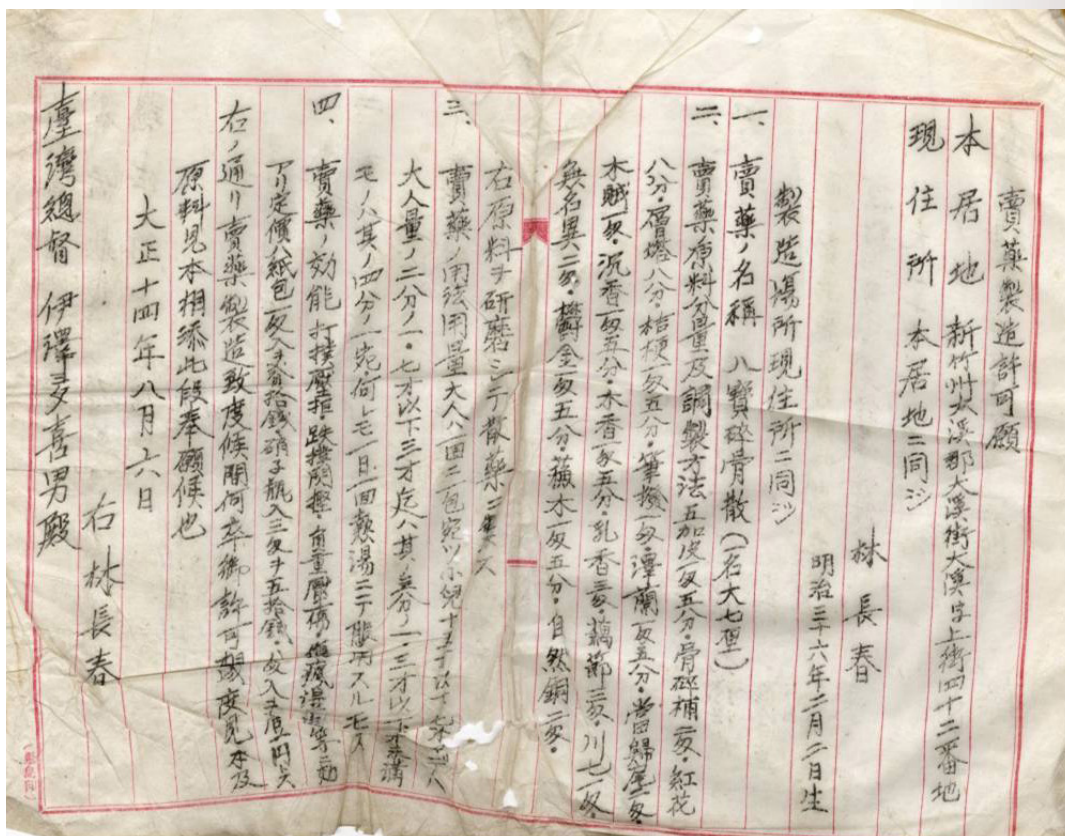 賣藥製造許可願
本居地 新竹州大溪郡大溪街大溪字上街四十二番地
現住所 本居地ニ同シ
林長春
明治三十六年二月二日生
製造場所現住所ニ同シ
一、賣藥ノ名稱 八寶碎骨散(一名大七厘)
二、賣藥原料分量及調製方法五加皮一匁五分・骨碎補二匁・紅花
八分・層塔八分・桔梗一匁五分・篳撥一匁・澤蘭一匁五分・當歸尾一匁・
木賊一匁・沉香一匁五分・木香一匁五分・乳香三匁・藕節三匁・川七一匁・
無名異二匁・欝金一匁五分・蘓木一匁五分・自然銅二匁・
右原料ヲ研磨シテ散藥ニ製ス
三、賣藥ノ用法用量大人ハ一回ニ一包宛ツ小兒十五才以下七才
大人量ノ二分ノ一・七才以下三才迄ハ其ノ三分ノ一・三才以下ニ不滿
モノハ其ノ四分ノ一宛何レモ一日一回熱湯ニテ服用スルモノス
四、賣藥ノ効能 打撲壓拒跌撲
アリ定價ハ紙包一匁入ヲ貳拾錢硝子瓶入三匁ヲ五拾錢
右ノ通リ賣藥製造致度候間何卒御許可願度見本及
原料見本相添此段奉願候也
大正十四年八月六日
右 林長春
臺灣總督 伊澤多喜男殿